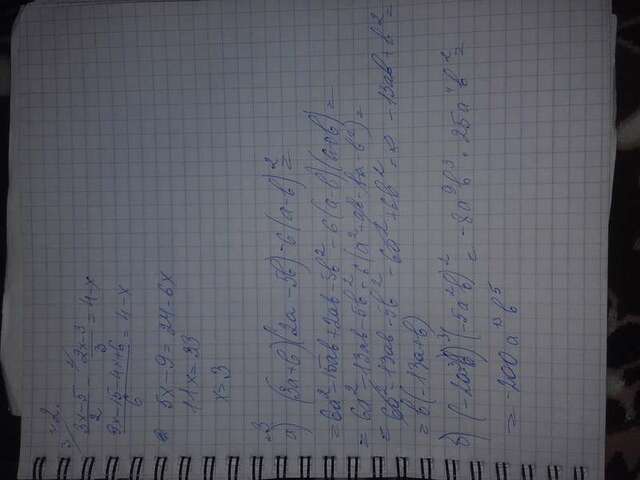 №2.
3 2
(3x-5)/2 - (2x-3)/3 = 4-x
(9x-15-4x+6)/6 = 4-x
5x-9=24-6x
11x=33
x=3
№3
а) (3a+b)(2a-5b)-6(a-b)²=
=6a²-15ab+2ab-5b²-6(a-b)(a+b)=
= 6a²-13ab-5b²-6(a²-ab-ba-b²)=
= 6a²-13ab-5b²-6a²+6b² = -13ab+b²=
= b(-13a+b)
б) (-2a³b)³(-5a²b)² = -8a⁹b³·25a⁴b²=
= -200a¹³b⁵